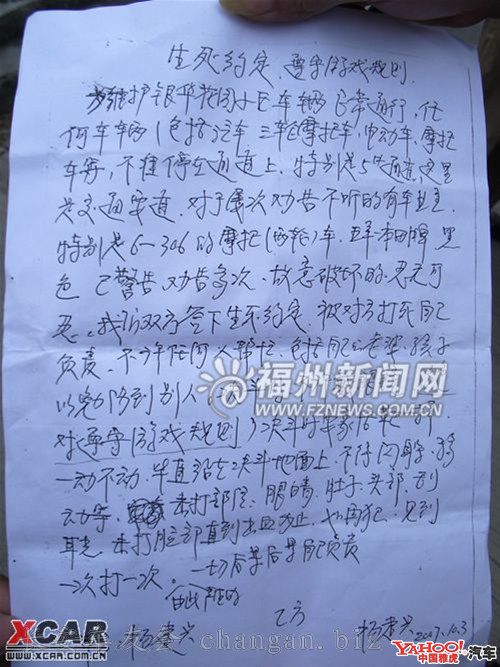 生死约定 遵守游戏规则.
为维护银华花园小区车辆正常通行,任
何车辆(包括汽车 三轮摩托车,电动车.摩托
车等,不准停在通道上.特别是5#通道这里
是交通要道.对于屡次劝告不听的有车业主.
特别是6-306的摩托(两轮)车.王本田牌 黑
色 已警告.劝告多次.故意破坏的.忍无可
忍.我们双方签下生死约定.被对方打死自己
负责.不许任何人帮忙.包括自己老婆孩子
以免伤到别人
对(遵守游戏规则)决斗时
一动不动.笔直站在决斗地面上.不许闪身.移
动等. 未打部位:眼睛.肚子.头部.到
耳光.未打脸部直到出血为止.如再犯.见到
一次打一次. 一切后果后果自己负责
由此产生的
乙方
杨 兴 2007.10.3
福州新闻网
WWW.FZNEWS.COM.CN
XCAR
WWW.XCAR.COM.CN
changan.biz
YAHOO!
中国雅虎 汽车